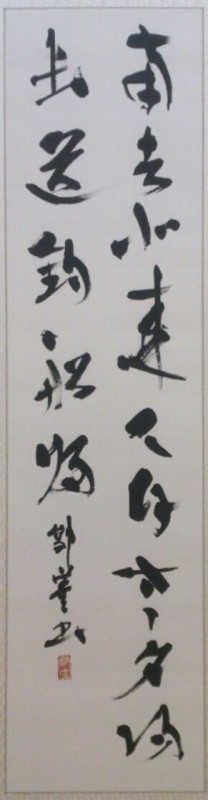 南去北來人自老夕陽
長送釣船歸 书